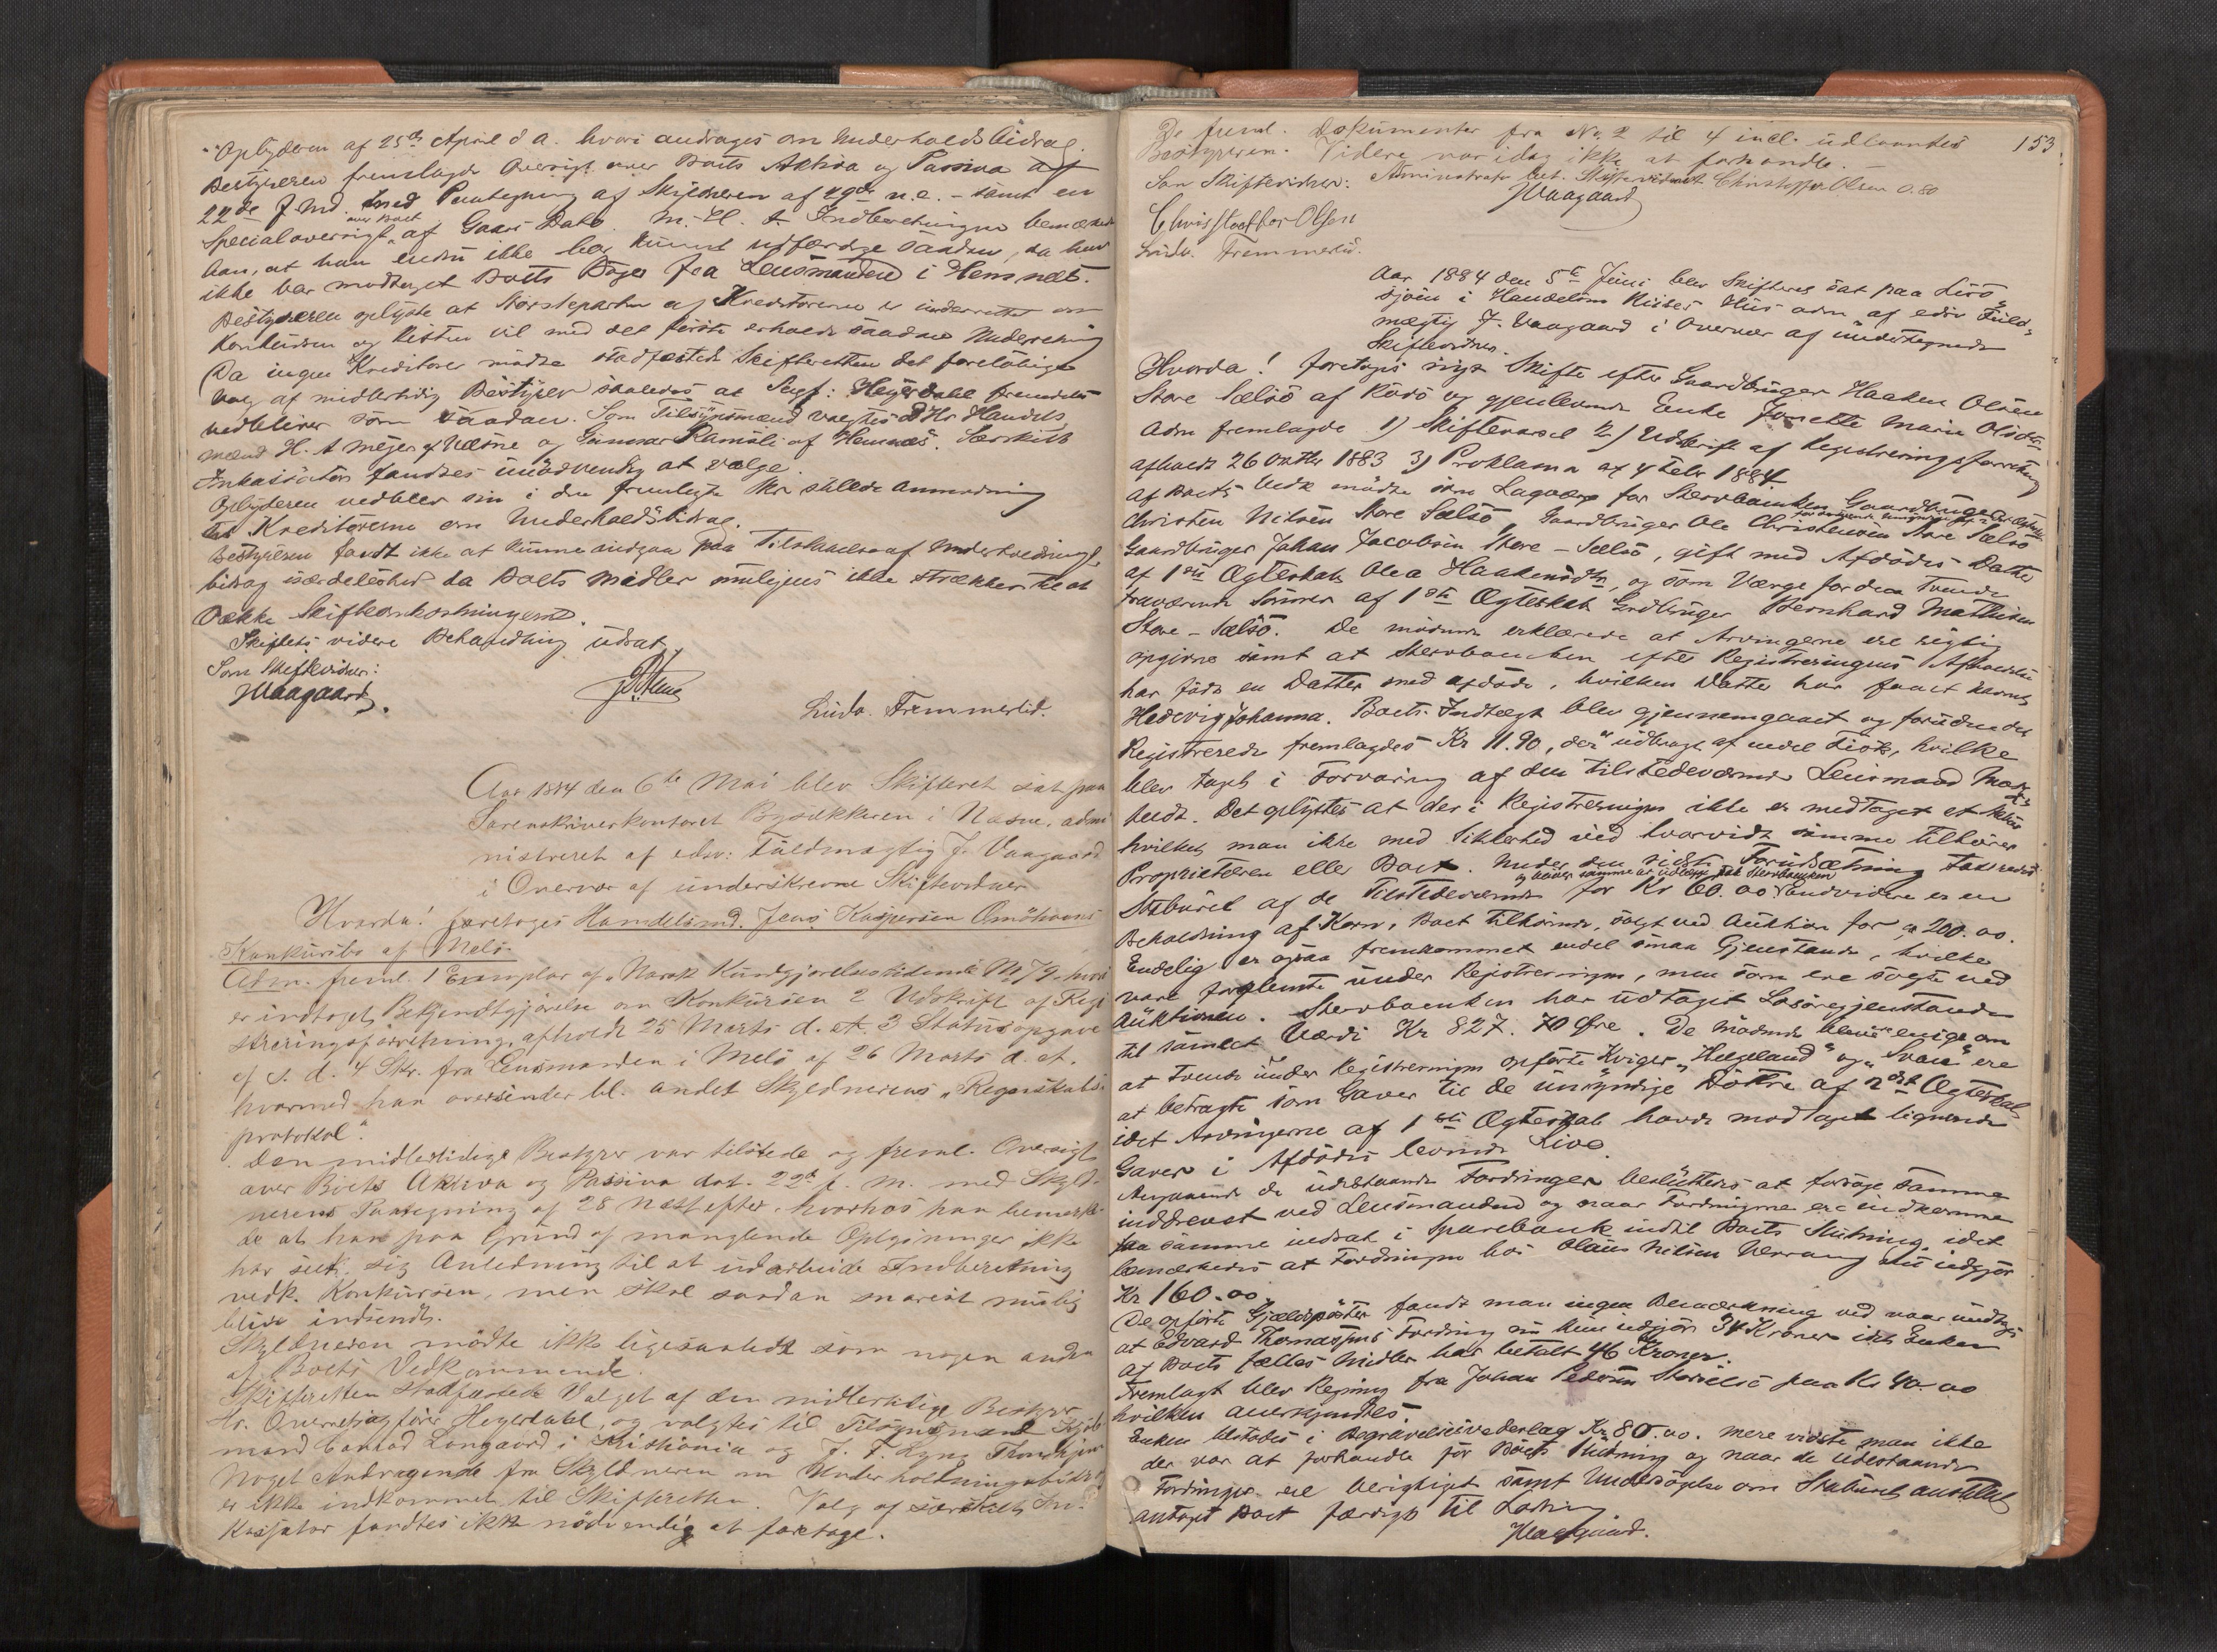 Opbyderen af 25de April d A. hvori andrages om Underholdsbidrag.
Bestyreren fremlagde Oversigt over Boets Aktiva og Passiva af
22de f. Md. med Paategning af Skyldneren af 29de n.e. - samt en
Specialoversigt over Boet af Gaars Dato. M. H. t. Indberetningen bemærkede
han, at han endnu ikke har kunnet udfærdige saadan, da han
ikke har modtaget Boets Bøger fra Lensmanden i Hemnæs.
Bestyreren oplyste at Størsteparten af Kreditorerne er underrettet om
Konkursen og Resten vil med det første erholde saadan Underretning
Da ingen Kreditorer mødte stadfæstede Skifteretten det foreløbige
Valg af midlertidig Bestyrer saaledes at Sagf: Heyerdahl fremdeles
vedbliver som saadan. Som Tilsynsmænd valgtes Hr Handels
mænd H. A Meyer af Næsne og Gunnar Ramsli af Hemnæs. Særskilt
Inkassator fandtes unødvendig at vælge.
Opbyderen vedblev sin i den fremlagte Skr stillede Anmodning
til Kreditorerne om Underholdsbidrag.
Bestyreren fandt ikke at kunne indgaa paa Tilstaaelse af Underholdnings
bidrag især da Boets Midler muligens ikke strækker til at
dække Skifteomkostningerne.
Skiftets videre Behandling udsat.
Som Skiftevidner:
JWaagaard.
Ludv. Fremmerlid.
Aar 1884 den 6te Mai blev Skifteret sat paa
Sorenskriverkontoret Bysekkeren i Næsne, admi
nistreret af edsv: Fuldmægtig J. Vaagaard
i Overvær af underskrevne Skiftevidner
Hvorda! foretoges Handelsmd. Jens Kaspersen Omshovns
Konkursbo af Melø.
Adm. freml. 1 Exemplar af "Norsk Kundgjørelsestidende No 79 hvori
er indtaget Bekjendtgjørelse om Konkursen 2 Udskrift af Regi
streringsforretning, afholdt 25 Marts d. A. 3 Status opgave
af s. d. 4 Skr. fra Lensmanden i Melø af 26 Marts d. A.
hvormed han oversender bl. andet Skyldnerens "Regnskabs
protokol".
Den midlertidige Bestyrer var tilstede og freml. Oversigt
over Boets Aktiva og Passiva dat. 22de f. M. med Skyld-
nerens Paategning af 28 næstefter, hvorhos han bemærke
de at han paa Grund af manglende Oplysninger ikke
har seet sig Anledning til at udarbeide Indberetning
vedk. Konkursen, men skal saadan snarest mulig
blive indsendt.
Skyldneren mødte ikke ligesaalidt som nogen anden
af Boets Vedkommende.
Skifteretten stadfæstede Valget af den midlertidige Bestyrer
Hr. Overretssagfører Heyerdahl, og valgtes til Tilsynsmænd Kjøb
mand Conrad Langaard i Kristiania og F. F. Lyng Throndhjem
Noget Andragende fra Skyldneren om Underholdningsbidrag
er ikke indkommet til Skifteretten. Valg af særskilt In-
kassator fandtes ikke nødvendig at foretage.
153
De freml. Dokumenter fra No 2 til 4 incl. udlaantes
Bestyreren. Videre var idag ikke at forhandle.
Som Skiftevidner: Administrator bet. Skiftevidnet Christopher Olsen 0.80
JWaagaard
Christoffer Olsen
Ludv. Fremmerlid.
Aar 1884 den 5te Juni blev Skifteret sat paa Lurø
sjøen i Handelsm Hus adm af edsv Fuld-
mægtig J. Vaagaard i Overvær af undertegnede
Skiftevidner.
Hvorda! foretoges nyt Skifte efter Gaardbruger Haaken Olsen
Store Selsø af Rødø og gjenlevende Enke Jonette Marie Olsdtr
Adm fremlagde 1) Skiftevarsel 2) Udskrift af Registreringsforretning
afholdt 26 Oktbr 1883 3) Proklama af 4 Febr 1884.
Af Boets Vedk mødte som Lagværge for Stervboenken Gaardbruger
Christen Nilsen Store Selsø, Gaardbruger Ole Christensen Store Selsø
Gaardbruger Johan Jacobsen Store-Selsø, gift med Afdødes Datter
af 1ste Ægteskab Olea Haakensdtr, og som Værge for den tvende
fraværende Sønner af 1ste Ægteskab Grdbruger Bernhard Mathisen
Store-Selsø. De mødende erklærede at Arvingerne ere rigtig
opgivne samt at Stervboenken efter Registreringens Afholdelse
har født en Datter med afdøde, hvilken Datter har faaet Navnet
Hedevig Johanna. Boets Indtægt blev gjennemgaaet og foruden det
Registrerede fremlagdes Kr 11.90, der er udbragt af endel Fisk, hvilke
blev taget i Forvaring af den tilstedeværende Lensmand Mar-
tens. Det oplystes at der i Registreringen ikke er medtaget et Stabur
hvilket man ikke med Sikkerhed ved hvorvidt samme tilhører
Proprietæren eller Boet. Under den sidste Forudsætning taxeredes
og bliver samme at udlægge paa Stervboenken
Staburet af de Tilstedeværende for Kr 60.00. Endvidere er en
Beholdning af Korn, Boet tilhørende, solgt ved Auktion for " 200.00.
Endelig er ogsaa fremkommet endel smaa Gjenstande, hvilke
vare forglemte under Registreringen, men som ere solgte ved
Auktionen. Stervboenken har udtaget Løsøregjenstande
til samlet Værdi Kr 827.70 Øre. De mødende blev enige om
at tvende under Registreringen opførte Kviger "Helgeland" og "Svane" ere
at betragte som Gaver til de umyndige Døttre af 2det Ægteskab
idet Arvingerne af 1ste Ægteskab havde modtaget lignende
Gaver i Afdødes levende Live.
Angaaende de udestaaende Fordringer besluttedes at forsøge samme
inddrevet ved Lensmanden og naar Fordringerne ere indkomne
faa samme indsat i Sparebank indtil Boets Slutning, idet
bemærkedes at Fordringen hos Olaus Nilsen Værang nu udgjør
Kr 160.00.
De opførte Gjældsposter fandt man ingen Bemærkning ved naar undtages
at Edvard Thomassens Fordring nu kun udgjør 34 Kroner idet Enken
af Boets fælles Midler har betalt 46 Kroner.
Fremlagt blev Regning fra Johan Pedersen Storselsø paa Kr 40.00
hvilken anerkjendtes.
Enken tilstodes i Begravelsesvederlag Kr 80.00. mere vidste man ikke
der var at forhandle før Boets Slutning og naar de udestaaende
Fordringer ere berigtiget samt Undersøgelse om Staburet anstillet
antoges Boet færdigt til Lodning
JWaagaard.